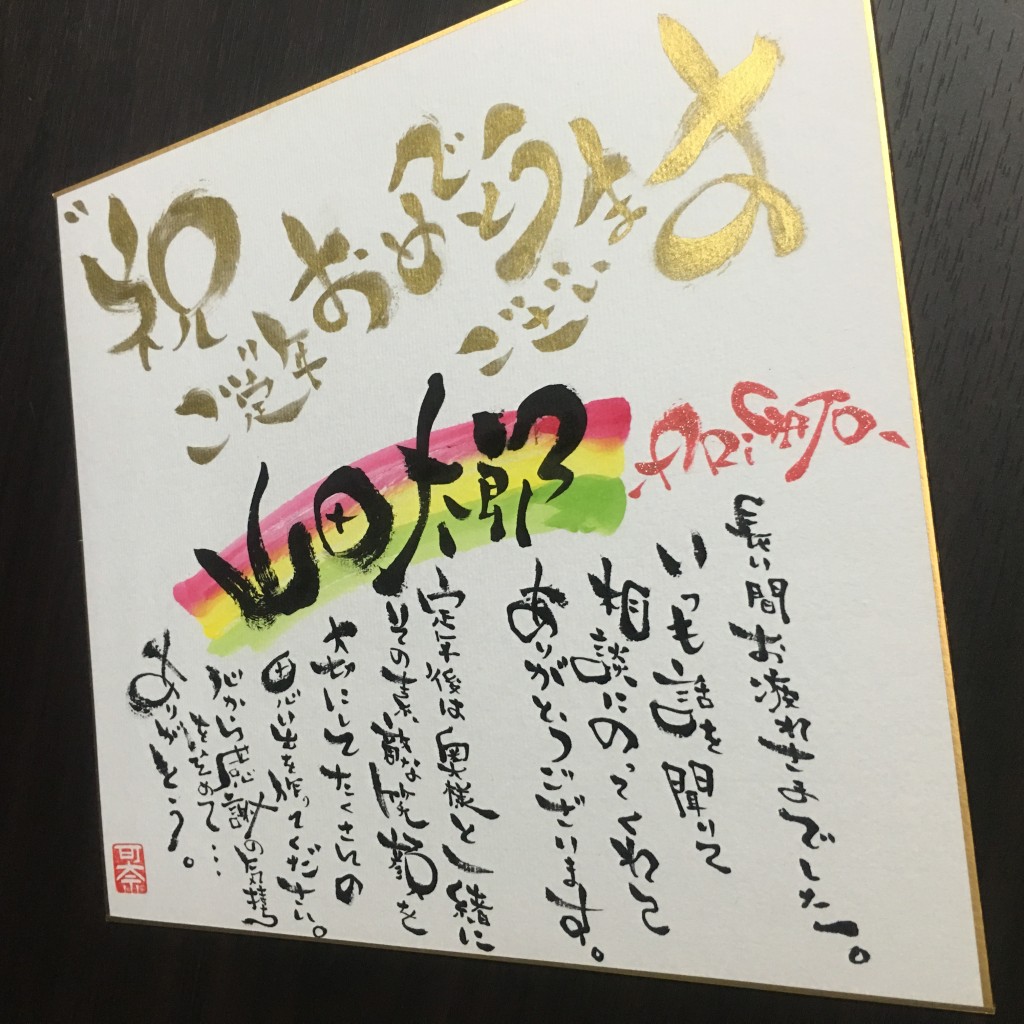 祝
ご定年
おめでとう
ございます
山田太郎
ARiGATO
長い間お疲れさまでした。
いつも話を聞いて
相談にのってくれて
ありがとうございます。
定年後は奥様と一緒に
の素敵な を
にしてたくさんの
思い出を作ってください。
心から感謝の気持ち
をこめて…
ありがとう。
可奈